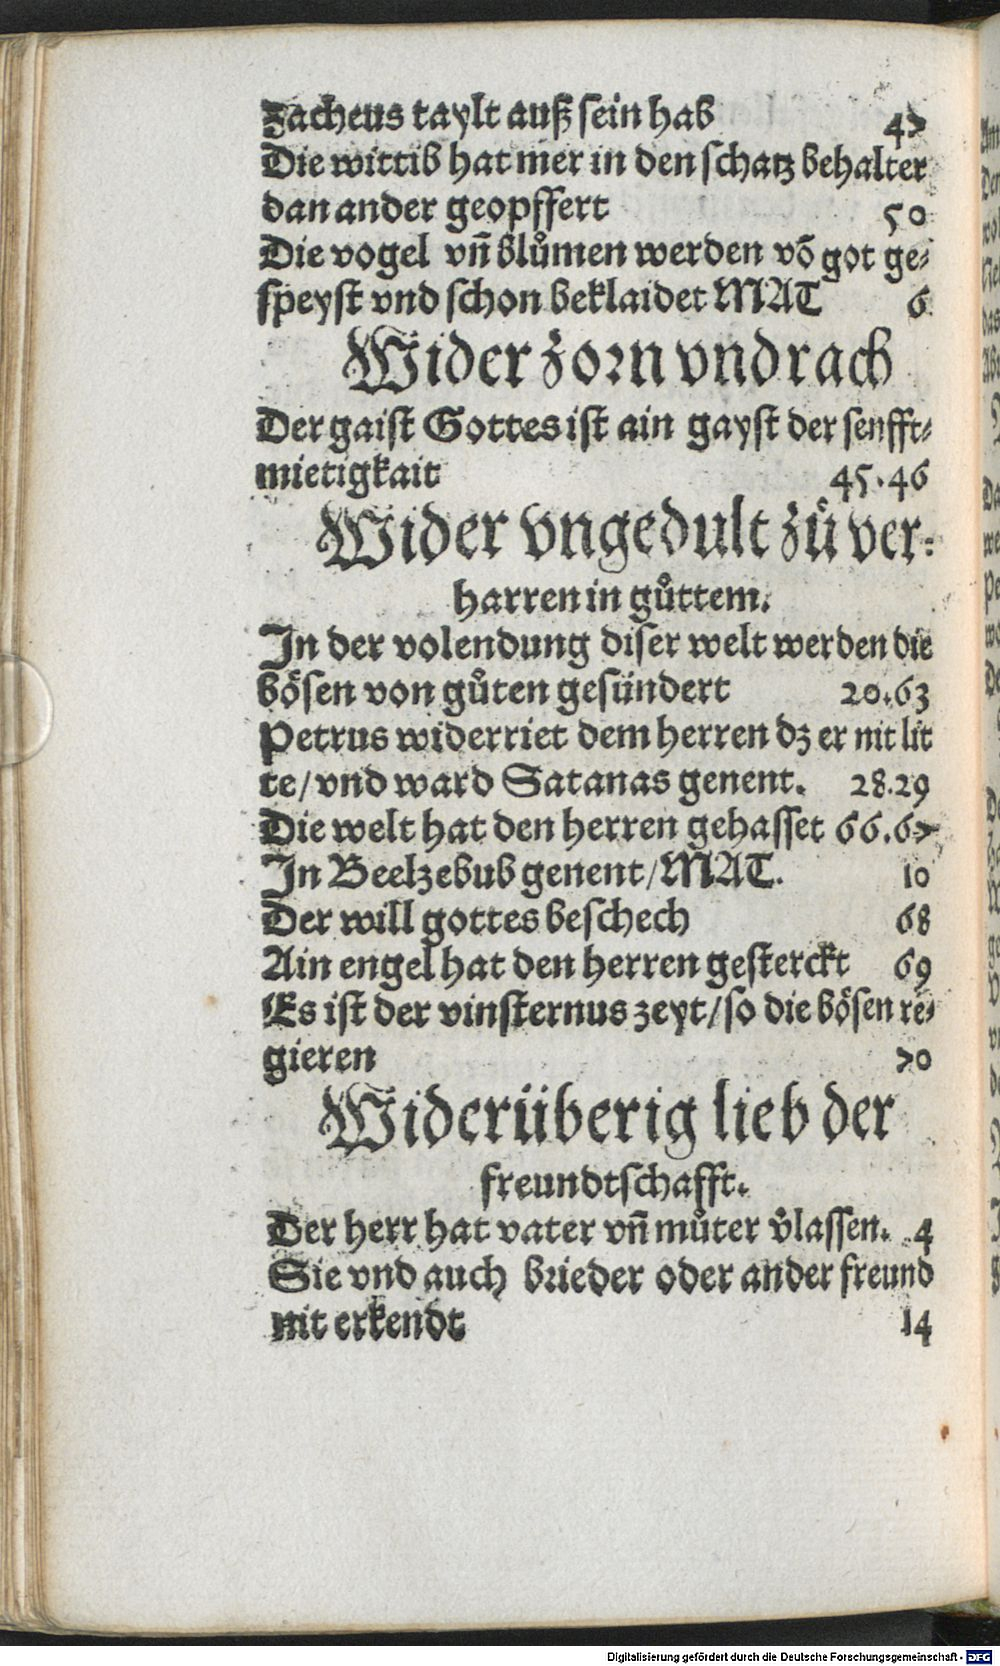 Zacheus taylt auß sein hab 47
Die wittib hat mer in den schatz behalter
dan ander geopffert 50
Die vogel vn̄ blůmen werden võ got ge⸗
speyst vnd schon beklaidet MAT 6
Wider zorn vnd rach
Der gaist Gottes ist ain gayst der senfft⸗
mietigkait 45.46
Wider vngedult zů ver⸗
harren in gůttem.
In der volendung diser welt werden die
bösen von gůten gesündert 20.63
Petrus widerriet dem herren dz er nit lit
te/ vnd ward Satanas genent. 28.29
Die welt hat den herren gehasset 66.67
In Beelzebub genent/ MAT. 10
Der will gottes beschech 68
Ain engel hat den herren gesterckt 69
Es ist der vinsternus zeyt/ so die bösen re⸗
gieren 70
Wider überig lieb der
freundtschafft.
Der herr hat vater vn̄ můter v̓lassen. 4
Sie vnd auch brieder oder ander freund
nit erkendt 14
Digitalisierung gefördert durch die Deutsche Forschungsgemeinschaft - DFG